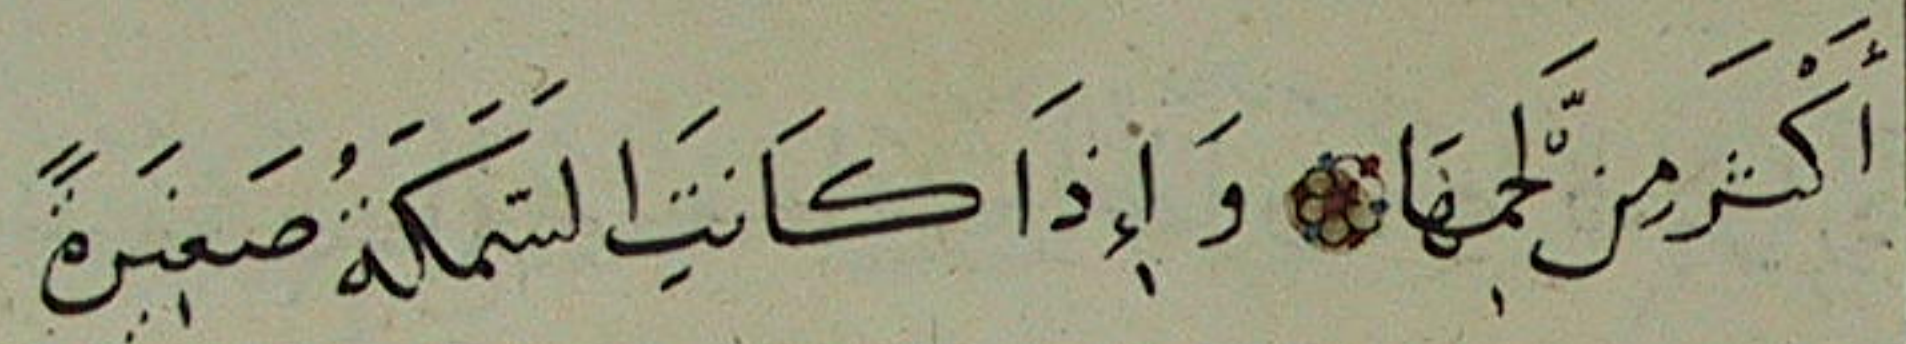 أَكْثَرَ مِن لَّحْمِهَا وَإِذَا كَانَتِ السَّمَكَةُ صَغِيرَةً